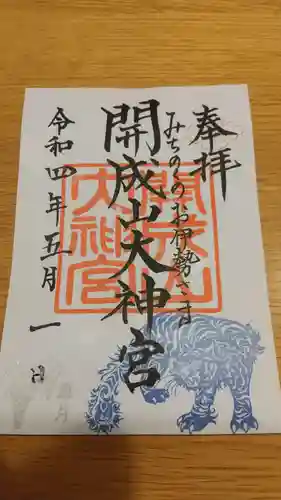 奉拝
みちのくのお伊勢さま
開成山大神宮
令和四年五月一日
開成山大神宮